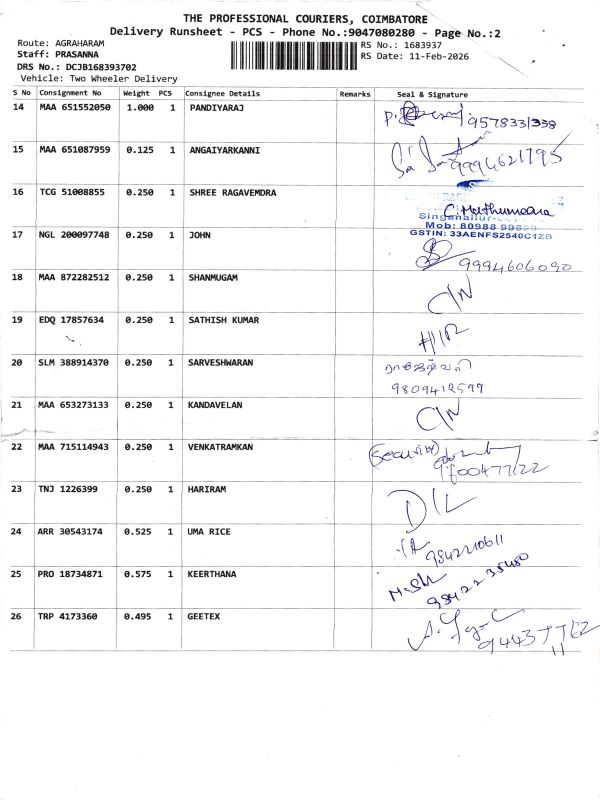 THE PROFESSIONAL COURIERS, COIMBATORE
Delivery Runsheet - PCS - Phone No.:9047080280 - Page No.:2
Route: AGRAHARAM
Staff: PRASANNA
DRS No.: DCJB168393702
Vehicle: Two Wheeler Delivery
RS No.: 1683937
RS Date: 11-Feb-2026
S No Consignment No Weight PCS Consignee Details Remarks Seal & Signature
14 MAA 651552050 1.000 1 PANDIYARAJ
15 MAA 651087959 0.125 1 ANGAIYARKANNI 9994621795
16 TCG 51008855 0.250 1 SHREE RAGAVEMDRA
Singanallur
Mob: 80988
GSTIN: 33AENFS2540C1ZB
17 NGL 200097748 0.250 1 JOHN 9994606090
18 MAA 872282512 0.250 1 SHANMUGAM C/N
19 EDQ 17857634 0.250 1 SATHISH KUMAR
20 SLM 388914370 0.250 1 SARVESHWARAN
9809412599
21 MAA 653273133 0.250 1 KANDAVELAN C/N
22 MAA 715114943 0.250 1 VENKATRAMKAN (Security)
23 TNJ 1226399 0.250 1 HARIRAM D/L
24 ARR 30543174 0.525 1 UMA RICE 9842210611
25 PRO 18734871 0.575 1 KEERTHANA
26 TRP 4173360 0.495 1 GEETEX